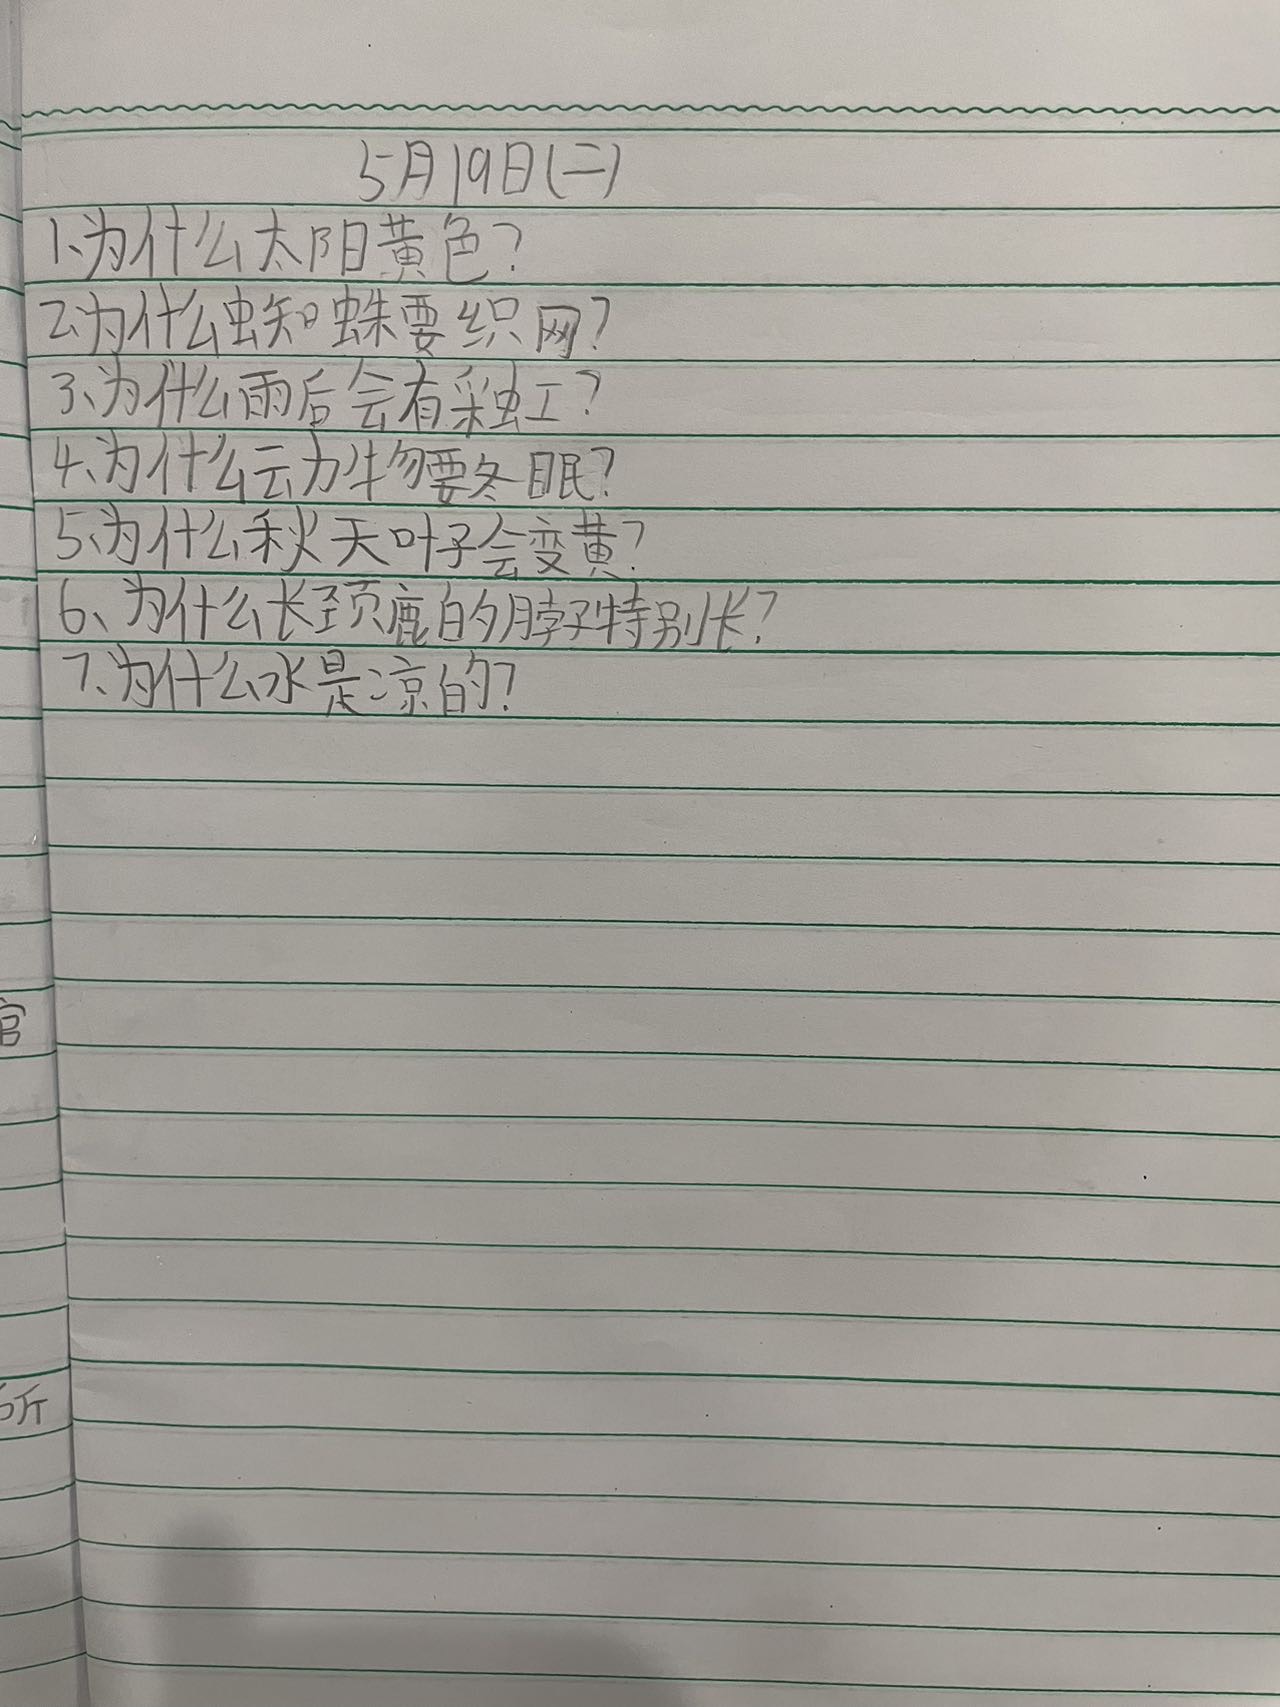 5月19日(二)
1、为什么太阳黄色?
2、为什么蜘蛛要织网?
3、为什么雨后会有彩虹?
4、为什么动物要冬眠?
5、为什么秋天叶子会变黄?
6、为什么长颈鹿的脖子特别长?
7、为什么水是凉的?
官